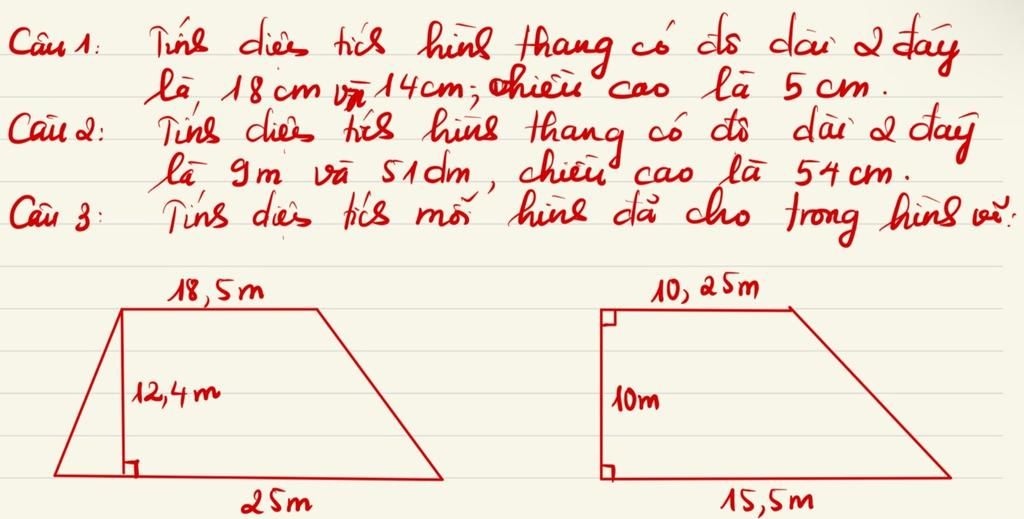 Câu 1: Tính diện tích hình thang có độ dài 2 đáy
là 18 cm và 14cm; chiều cao là 5 cm.
Câu 2: Tính diện tích hình thang có độ dài 2 đáy
là 9m và 51dm, chiều cao là 54 cm.
Câu 3: Tính diện tích mỗi hình đã cho trong hình vẽ:
18,5m
10,25m
12,4m
10m
25m
15,5m